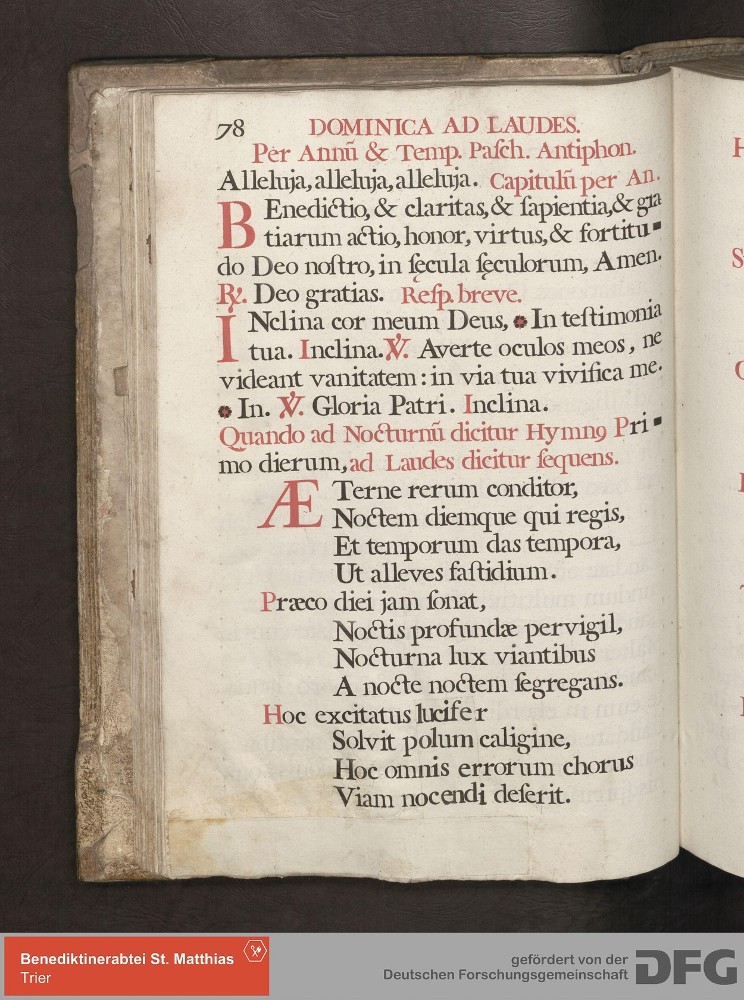 78 DOMINICA AD LAUDES.
Per Annū & Temp. Paſch. Antiphon.
Alleluja, alleluja, alleluja. Capitulū per An.
BEnedictio, & claritas, & ſapientia, & gra
tiarum actio, honor, virtus, & fortitu-
do Deo noſtro, in ſęcula ſęculorum, Amen.
℟. Deo gratias. Reſp. breve.
INclina cor meum Deus, * In teſtimonia
tua. Inclina. ℣. Averte oculos meos, ne
videant vanitatem: in via tua vivifica me.
* In. ℣. Gloria Patri. Inclina.
Quando ad Nocturnū dicitur Hymnꝯ Pri-
mo dierum, ad Laudes dicitur ſequens.
ÆTerne rerum conditor,
Noctem diemque qui regis,
Et temporum das tempora,
Ut alleves faſtidium.
Præco diei jam ſonat,
Noctis profundæ pervigil,
Nocturna lux viantibus
A nocte noctem ſegregans.
Hoc excitatus lucifer
Solvit polum caligine,
Hoc omnis errorum chorus
Viam nocendi deſerit.
Benediktinerabtei St. Matthias
Trier
gefördert von der
Deutschen Forschungsgemeinschaft
DFG